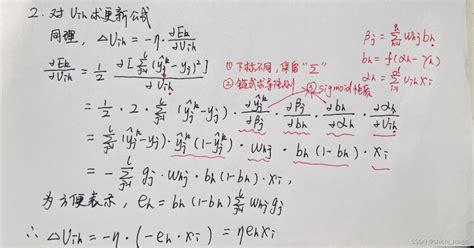 2. 对 Vih 求更新公式
同理, ΔVih = -η · ∂Ek/∂Vih
βj = Σ whj bh
bh = f(αh - γh)
αh = Σ vih xi
∂Ek/∂Vih = 1/2 · ∂[Σ(ŷjᵏ - yj)²]/∂Vih
①下标不同，保留"Σ"
②链式求导法则
③Sigmoid性质
= 1/2 · 2 · Σ (ŷjᵏ - yj) · ∂ŷjᵏ/∂βj · ∂βj/∂bh · ∂bh/∂αh · ∂αh/∂Vih
= Σ (ŷjᵏ - yj) · ŷjᵏ (1-ŷjᵏ) · whj · bh (1-bh) · xi
= - Σ gj · whj · bh (1-bh) · xi ,
为方便表示, eh = bh (1-bh) Σ whj gj
∴ ΔVih = -η · (-eh · xi) = η eh xi